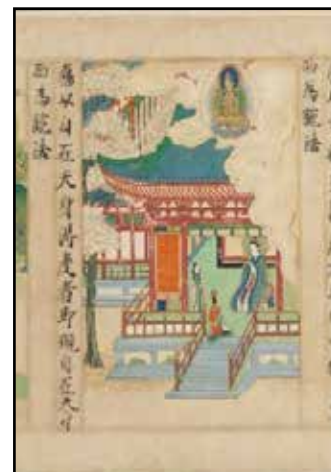 而為說法
應以自在天身得度者即現自在天身
而為說法